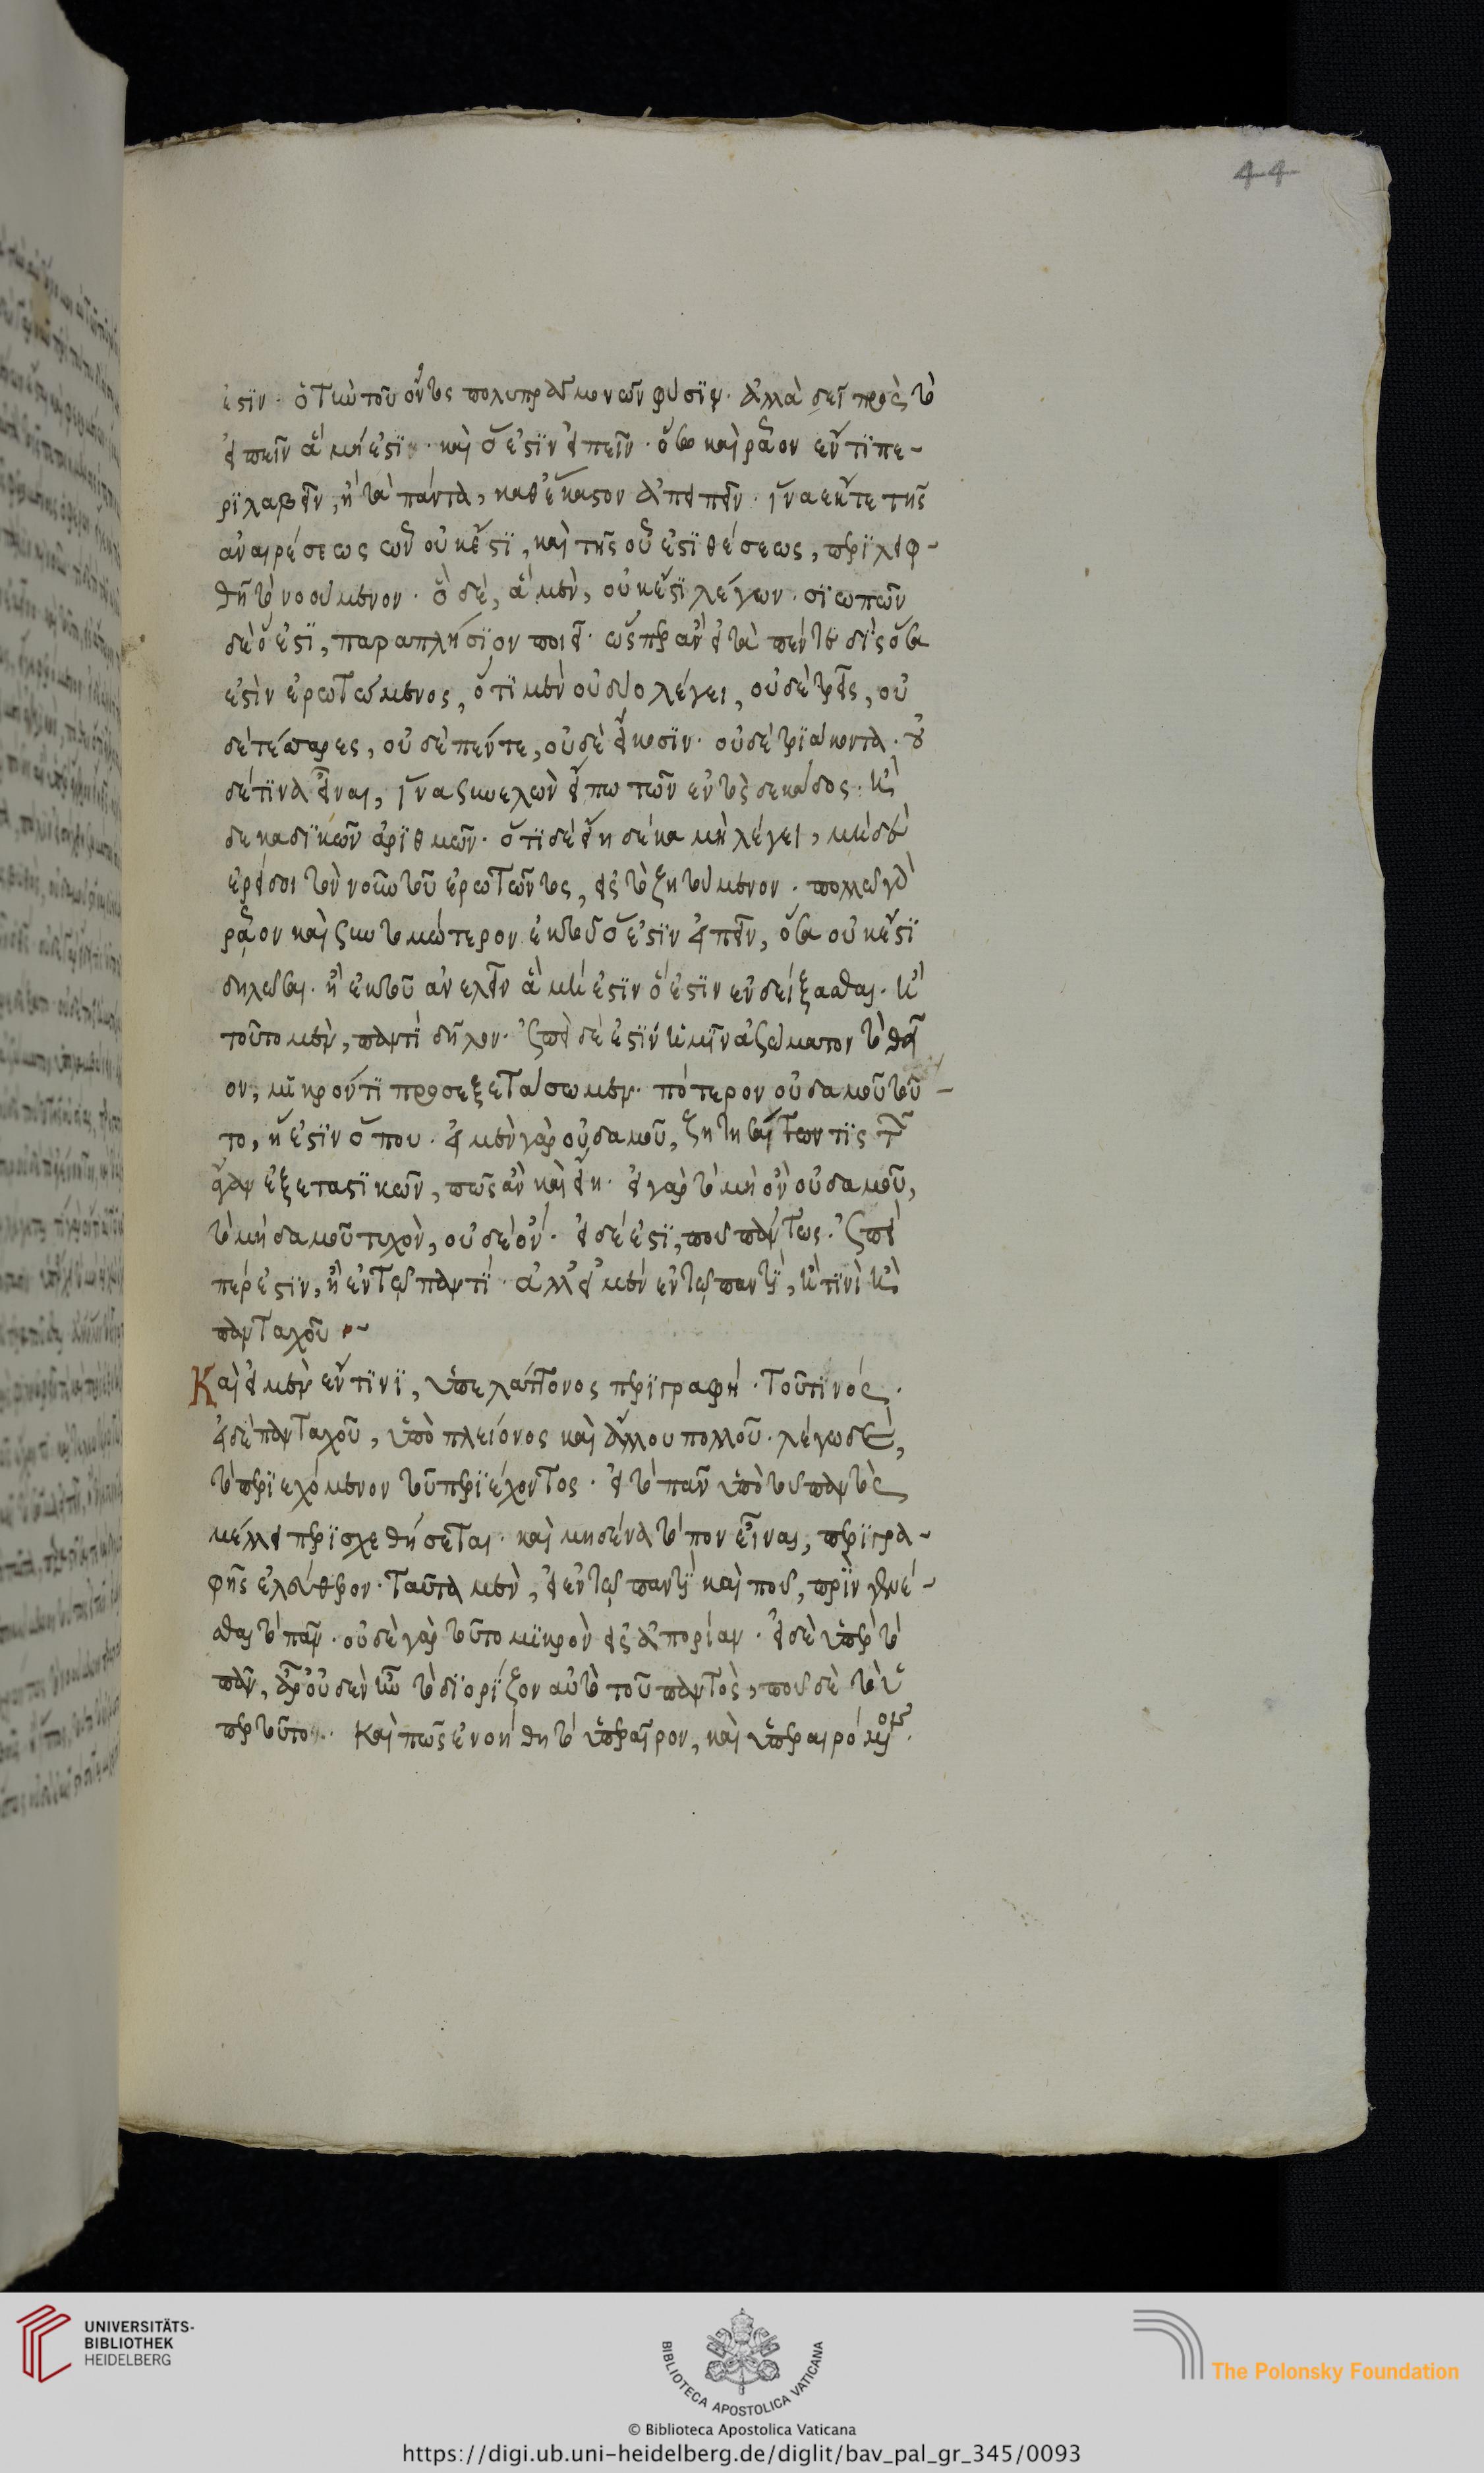 ἐστιν· ὁ τὴν τοῦ ὄντος πολυπραγμονῶν φύσιν· ἀλλὰ δεῖ πρὸς τὸ
εἰπεῖν ἃ μή ἐστιν· καὶ ὅ ἐστιν εἰπεῖν· ὅσω καὶ ρᾶον ἕν τι πε-
ριλαβεῖν, ἢ τὰ πάντα, καθ' ἕκαστον ἀπειπεῖν· ἵνα ἔκ τε τῆς
ἀναιρέσεως ὧν οὐκ ἔστι, καὶ τῆς οὗ ἐστι θέσεως, περιλειφ-
θῆ τὸ νοούμενον· ὁ δὲ, ἃ μὲν, οὐκ ἔστι λέγων· σιωπῶν
δὲ ὅ ἐστι, παραπλήσιον ποιεῖ· ὥσπερ ἂν εἰ τὰ πέντε δὶς ὅσα
ἐστὶν ἐρωτώμενος, ὅτι μὲν οὐ δύο λέγει, οὐδὲ τρεῖς, οὐ
δὲ τέσσαρες, οὐδὲ πέντε, οὐδὲ εἴκοσιν· οὐδὲ τριάκοντα· οὐ
δέ τινα εἶναι, ἵνα συνελὼν εἴπω τῶν ἐντὸς δεκάδος· ἢ
δεκαδικῶν ἀριθμῶν· ὅτι δὲ εἴη δέκα μὴ λέγει, μηδὲ
ἐρείσοι τὸν νοῦν τοῦ ἐρωτῶντος, εἰς τὸ ζητούμενον· πολλῶ γὰρ
ρᾶον καὶ συντομώτερον ἐκ τοῦ ὅ ἐστιν εἰπεῖν, ὅσα οὐκ ἔστι
δηλῶσαι· ἢ ἐκ τοῦ ἀνελεῖν ἃ μή ἐστιν ὅ ἐστιν ἐνδείξασθαι· ἢ
τοῦτο μὲν, παντὶ δῆλον· ἐπεὶ δέ ἐστιν ἡμῖν ἀσώματον τὸ θεῖ
ον, μικρόν τι προσεξετάσωμεν· πότερον οὐδαμοῦ τοῦ-
το, ἢ ἔστιν ὅπου· εἰ μὲν γὰρ οὐδαμοῦ, ζητῆσαι τις τῶν
ἄγαν ἐξεταστικῶν, πῶς ἂν καὶ εἴη· εἰ γὰρ τὸ μὴ ὂν οὐδαμοῦ,
τὸ μηδαμοῦ τυχὸν, οὐδὲ ὄν· εἰ δέ ἐστι, που πάντως· ἐπεὶ
πέρ ἐστιν, ἢ ἐν τῶ παντί· ἀλλ' εἰ μὲν ἐν τῶ παντὶ, ἤ τινὶ ἢ
πανταχοῦ ·-
Καὶ εἰ μὲν ἔν τινι, ὑπ' ἐλάττονος περιγραφή· τοῦ τινός·
εἰ δὲ πανταχοῦ, ὑπὸ πλείονος καὶ ἄλλου πολλοῦ· λέγω δὲ,
τὸ περιεχόμενον τοῦ περιέχοντος· εἰ τὸ πᾶν ὑπὸ τοῦ παντὸς
μέλλει περισχεθήσεται· καὶ μηδένα τόπον εἶναι, περιγρα-
φῆς ἐλεύθερον· ταῦτα μὲν, εἰ ἐν τῶ παντὶ καὶ ποῦ, πρὶν γενέ-
σθαι τὸ πᾶν· οὐδὲ γὰρ τοῦτο μικρὸν εἰς ἀπορίαν· εἰ δὲ ὑπὲρ τὸ
πᾶν, ἆρ' οὐδὲν ἦν τὸ διορίζον αὐτὸ τοῦ παντὸς, ποῦ δὲ τὸ ὑ
πὲρ τοῦτο· Καὶ πῶς ἐνοήθη τὸ ὑπεραῖρον, καὶ ὑπεραιρόμενον·
44
UNIVERSITÄTS-
BIBLIOTHEK
HEIDELBERG
BIBLIOTECA APOSTOLICA VATICANA
The Polonsky Foundation
© Biblioteca Apostolica Vaticana
https://digi.ub.uni-heidelberg.de/diglit/bav_pal_gr_345/0093